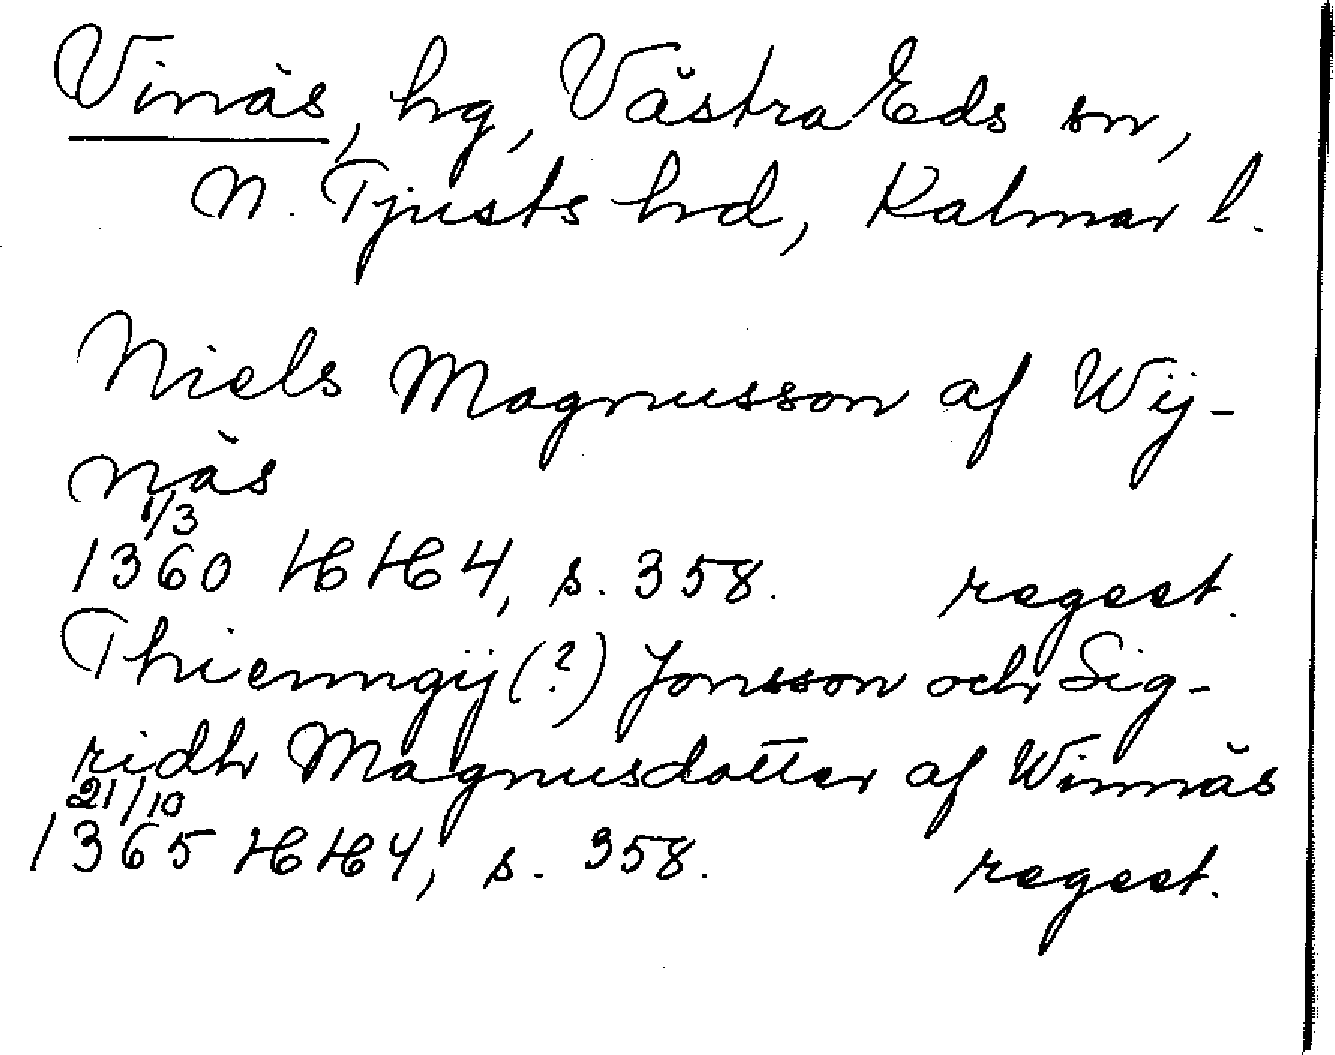 Vinäs, hg, Västra Eds sn,
N. Tjusts hd, Kalmar l.
Niels Magnusson af Wij-
näs
1/3
1360 HH 4, s. 358. regest.
Thienngij (?) Jonsson och Sig-
ridh Magnusdotter af Winnäs
21/10
1365 HH 4, s. 358. regest.